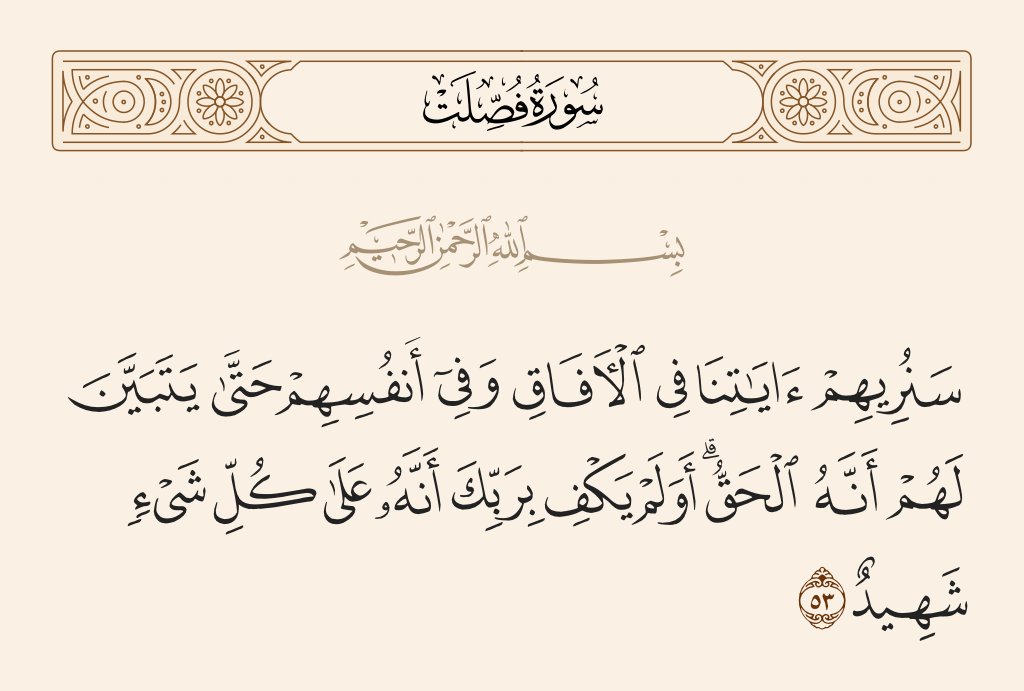 سُورَةُ فُصِّلَتْ
بِسْمِ ٱللَّهِ ٱلرَّحْمَٰنِ ٱلرَّحِيمِ
سَنُرِيهِمْ ءَايَـٰتِنَا فِى ٱلْـَٔافَاقِ وَفِىٓ أَنفُسِهِمْ حَتَّىٰ يَتَبَيَّنَ
لَهُمْ أَنَّهُ ٱلْحَقُّ ۗ أَوَلَمْ يَكْفِ بِرَبِّكَ أَنَّهُۥ عَلَىٰ كُلِّ شَىْءٍ
شَهِيدٌ ٥٣